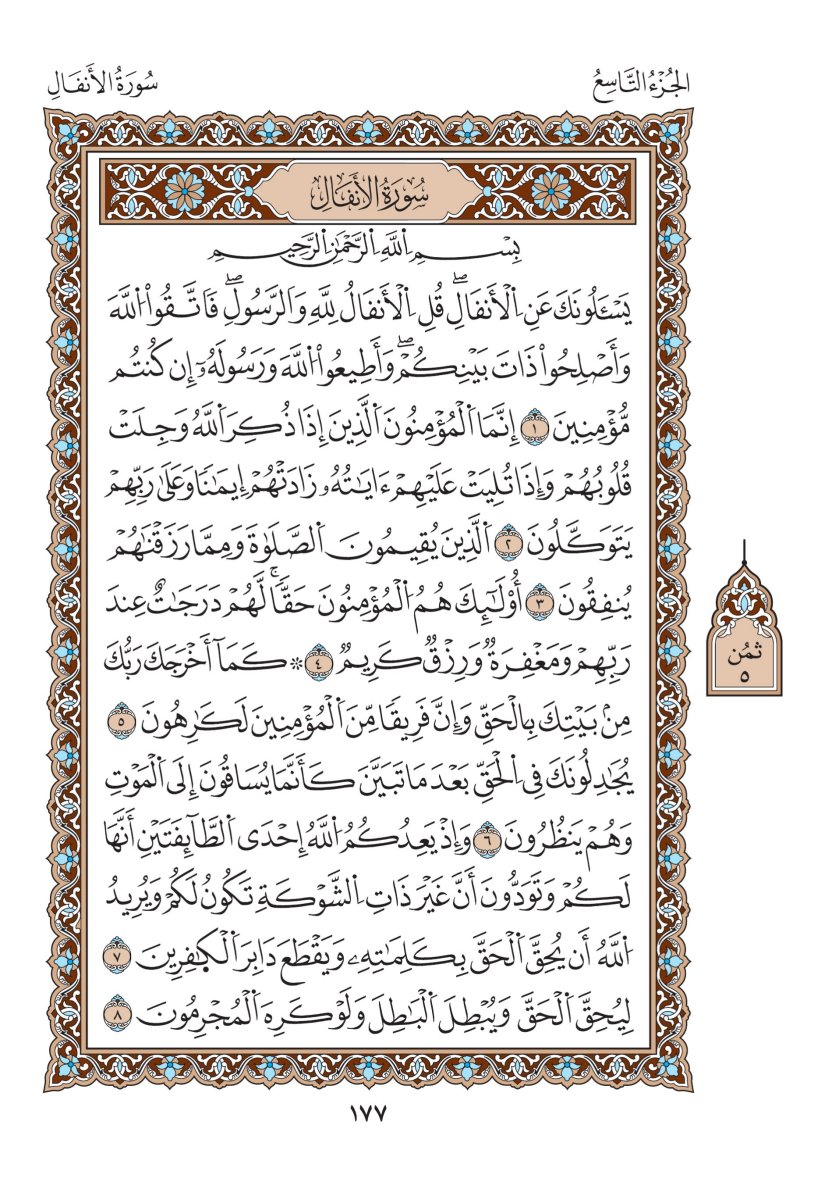 الجُزْءُ التَّاسِعُ
سُورَةُ الأَنفَالِ
سُورَةُ الأَنفَالِ
بِسْمِ اِ۬للَّهِ اِ۬لرَّحْمَٰنِ اِ۬لرَّحِيمِ
يَسْـَٔلُونَكَ عَنِ اِ۬لْأَنفَالِۖ قُلِ اِ۬لْأَنفَالُ لِلَّهِ وَالرَّسُولِۖ فَاتَّقُواْ اُ۬للَّهَ
وَأَصْلِحُواْ ذَاتَ بَيْنِكُمْۖ وَأَطِيعُواْ اُ۬للَّهَ وَرَسُولَهُۥٓ إِن كُنتُم
مُّؤْمِنِينَ ١ إِنَّمَا اَ۬لْمُؤْمِنُونَ اَ۬لَّذِينَ إِذَا ذُكِرَ اَ۬للَّهُ وَجِلَتْ
قُلُوبُهُمْ وَإِذَا تُلِيَتْ عَلَيْهِمْ ءَايَٰتُهُۥ زَادَتْهُمْ إِيمَٰنًا وَعَلَىٰ رَبِّهِمْ
يَتَوَكَّلُونَ ٢ اَ۬لَّذِينَ يُقِيمُونَ اَ۬لصَّلَوٰةَ وَمِمَّا رَزَقْنَٰهُمْ
يُنفِقُونَ ٣ أُوْلَٰٓئِكَ هُمُ اُ۬لْمُؤْمِنُونَ حَقّٗاۚ لَّهُمْ دَرَجَٰتٌ عِندَ
رَبِّهِمْ وَمَغْفِرَةٞ وَرِزْقٞ كَرِيمٞ ٤ ۞ كَمَآ أَخْرَجَكَ رَبُّكَ
مِنۢ بَيْتِكَ بِالْحَقِّ وَإِنَّ فَرِيقٗا مِّنَ اَ۬لْمُؤْمِنِينَ لَكَٰرِهُونَ ٥
يُجَٰدِلُونَكَ فِى اِ۬لْحَقِّ بَعْدَ مَا تَبَيَّنَ كَأَنَّمَا يُسَاقُونَ إِلَى اَ۬لْمَوْتِ
وَهُمْ يَنظُرُونَ ٦ وَإِذْ يَعِدُكُمُ اُ۬للَّهُ إِحْدَى اَ۬لطَّآئِفَتَيْنِ أَنَّهَا
لَكُمْ وَتَوَدُّونَ أَنَّ غَيْرَ ذَاتِ اِ۬لشَّوْكَةِ تَكُونُ لَكُمْ وَيُرِيدُ
اُ۬للَّهُ أَن يُحِقَّ اَ۬لْحَقَّ بِكَلِمَٰتِهِۦ وَيَقْطَعَ دَابِرَ اَ۬لْكَٰفِرِينَ ٧
لِيُحِقَّ اَ۬لْحَقَّ وَيُبْطِلَ اَ۬لْبَٰطِلَ وَلَوْ كَرِهَ اَ۬لْمُجْرِمُونَ ٨
ثُمُن
٥
١٧٧